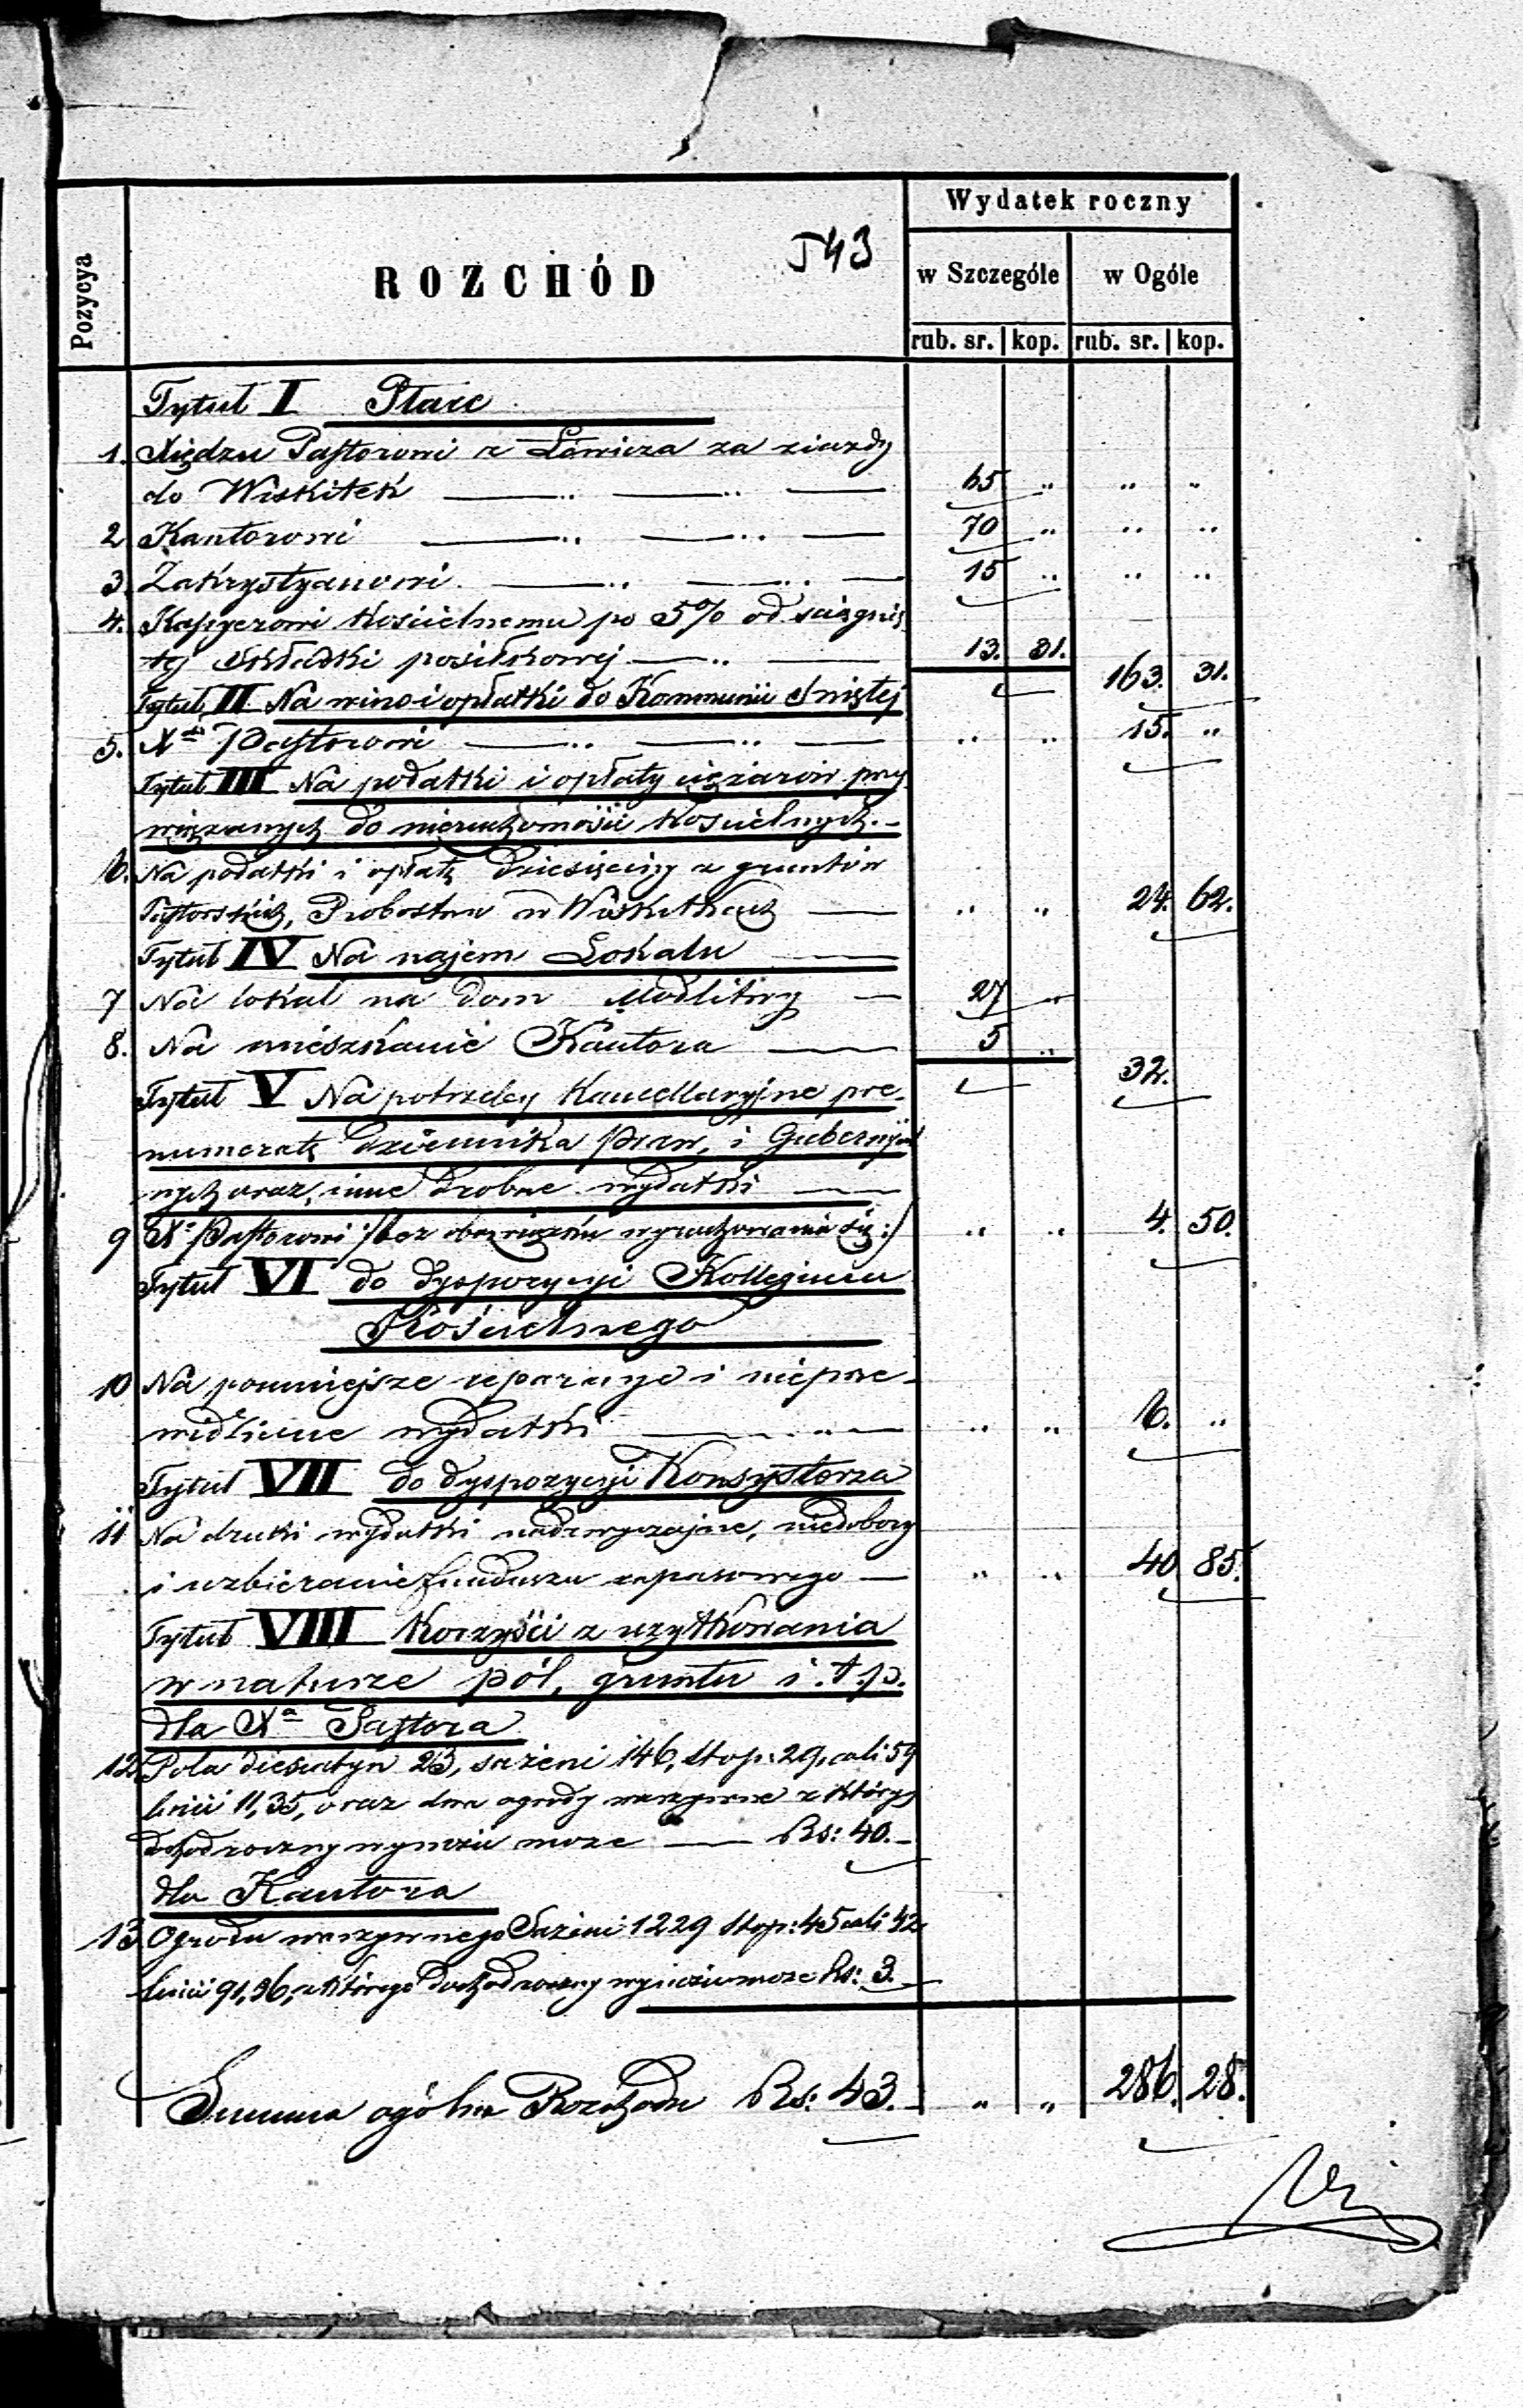 Pozycya
ROZCHÓD
543
Wydatek roczny
w Szczególe w Ogóle
rub. sr. kop. rub. sr. kop.
Tytuł I Płace
1. Xiędzu Pastorowi z Łowicza za ziazdy
do Wiskitek 65 „ „ „
2 Kantorowi 70 „ „ „
3. Zakrystyanowi 15 „ „ „
4. Kassyerowi Kościelnemu po 5% od sciągnię
tej składki posiłkowej 13. 31. 163. 31.
Tytuł II Na wino i opłatki do Kommunii Swiętej
5. Xdu Pastorowi „ „ 15. „
Tytuł III Na podatki i opłaty ciężarów przy
wiązanych do nieruchomości Kościelnych.
6. Na podatki i opłatę dziesięciny z gruntów
Pastorskich, Probostwu w Wiskitkach „ „ 24. 62.
Tytuł IV Na najem Lokalu
7 Na lokal na dom Modlitwy 27 „
8. Na mieszkanie Kantora 5 „ 32.
Tytuł V Na potrzeby Kancellaryjne pre-
numeratę Dziennika praw, i Gubernijal
nych oraz, inne drobne wydatki
9 X. Pastorowi /:bez obowiązku wyrachowania się:/ „ „ 4. 50.
Tytuł VI do dyspozycyi Kollegium
Kościelnego
10 Na pomniejsze reparacye i nieprze-
widziane wydatki „ „ 6. „
Tytuł VII do dyspozycyi Konsystorza
11 Na druki wydatki nadzwyczajne, niedobory
i uzbieranie funduszu zapasowego „ „ 40 85.
Tytuł VIII Korzyści z użytkowania
w naturze pól, gruntu i. t. p.
dla Xa Pastora
12. Pola diesiatyn 23, sażeni 146, stop: 29, cali 59
linii 11,35, oraz dwa ogrody warzywne z których
dochód roczny wynosić może Rs: 40.
dla Kantora
13 Ogrodu warzywnego Sażeni 1229 stop: 45 cali 42
linii 91,96, z którego dochód roczny wynosić może Rs: 3.
Summa ogólna Rozchodu Rs: 43. „ „ 286. 28.